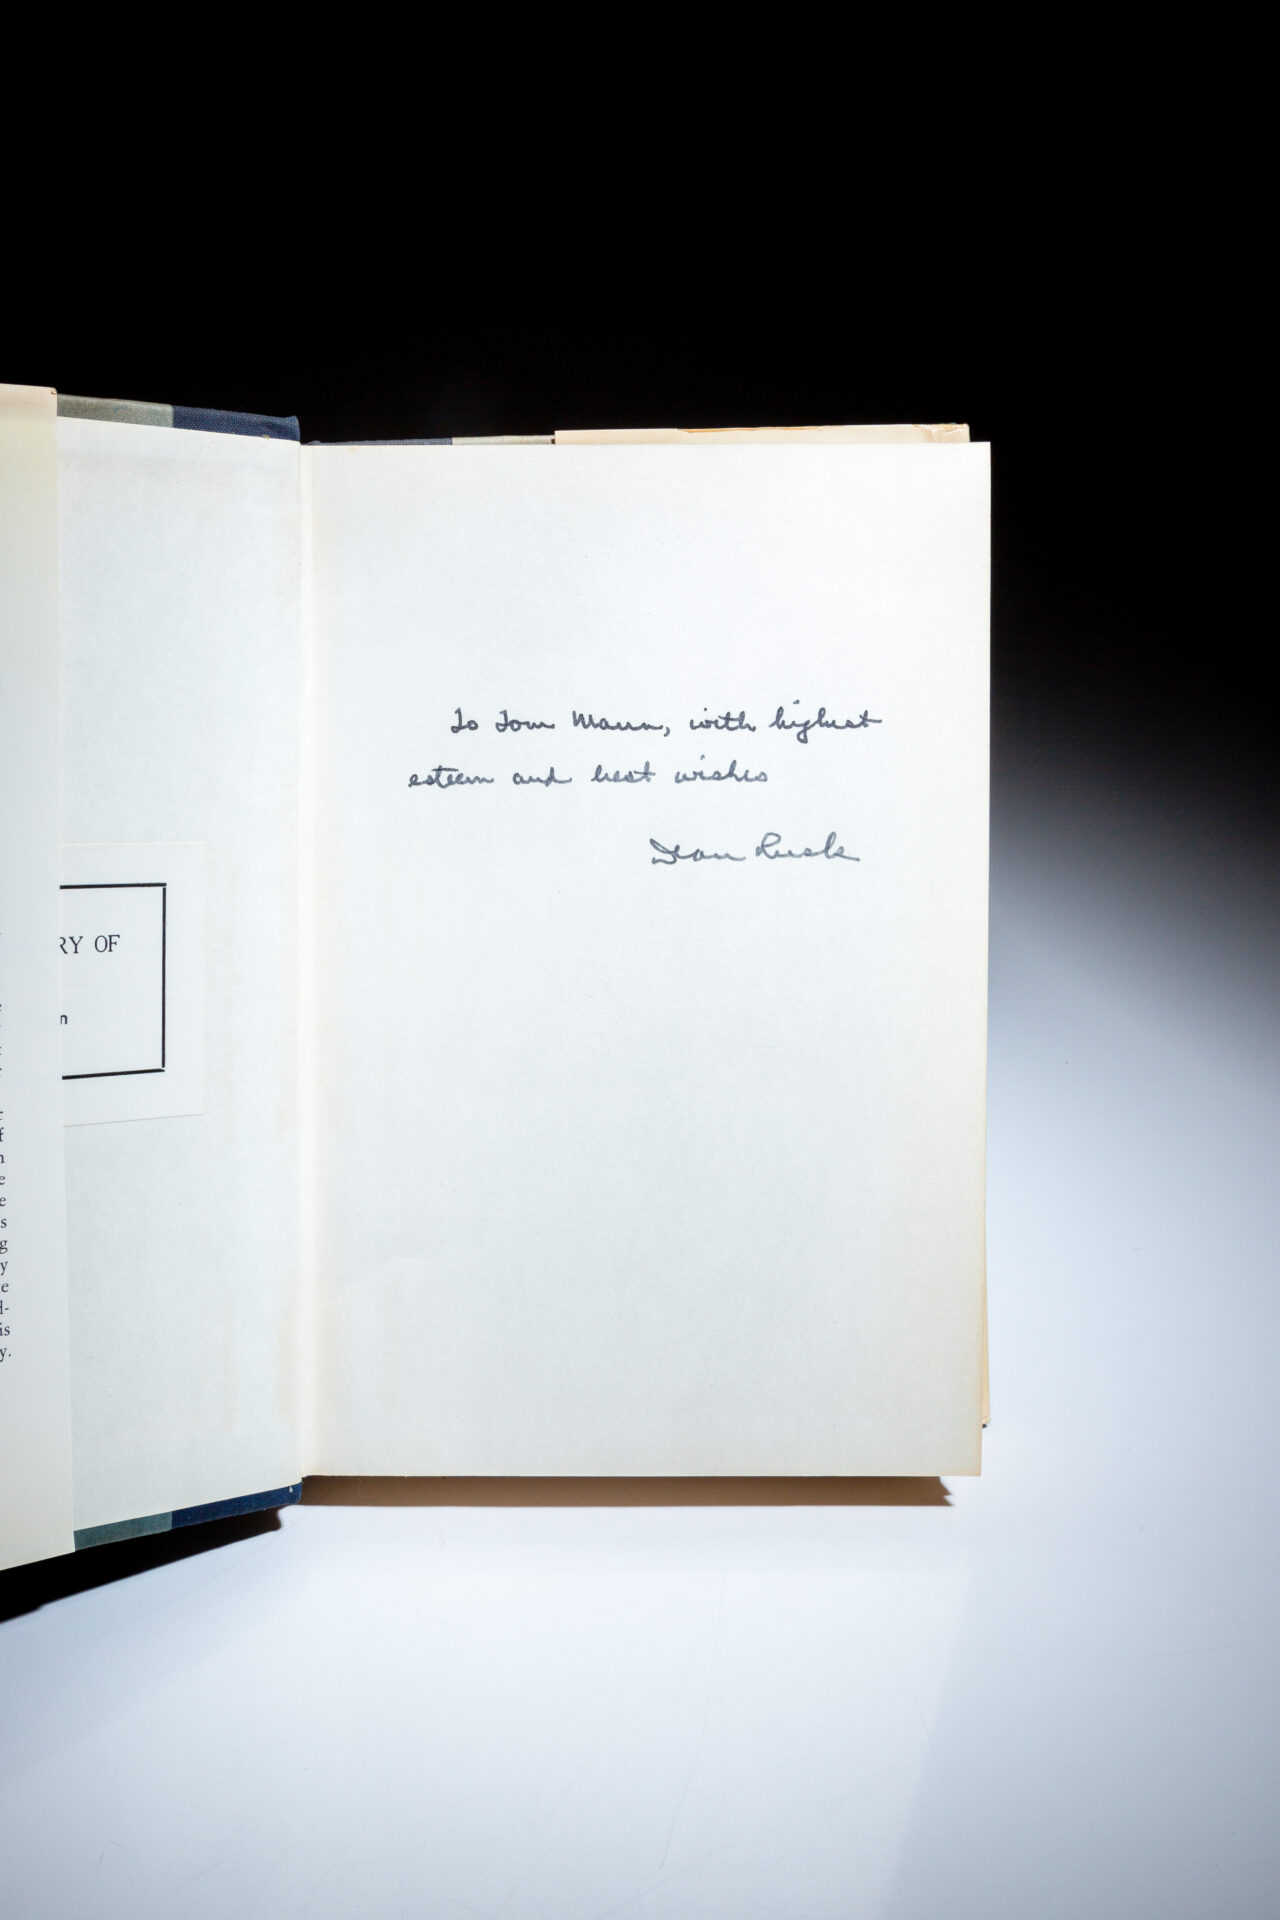 To Tom Mann, with highest
esteem and best wishes
Dean Rusk
RY OF
n
e
t
r
r
f
n
e
e
s
g
y
e
d-
is
y.